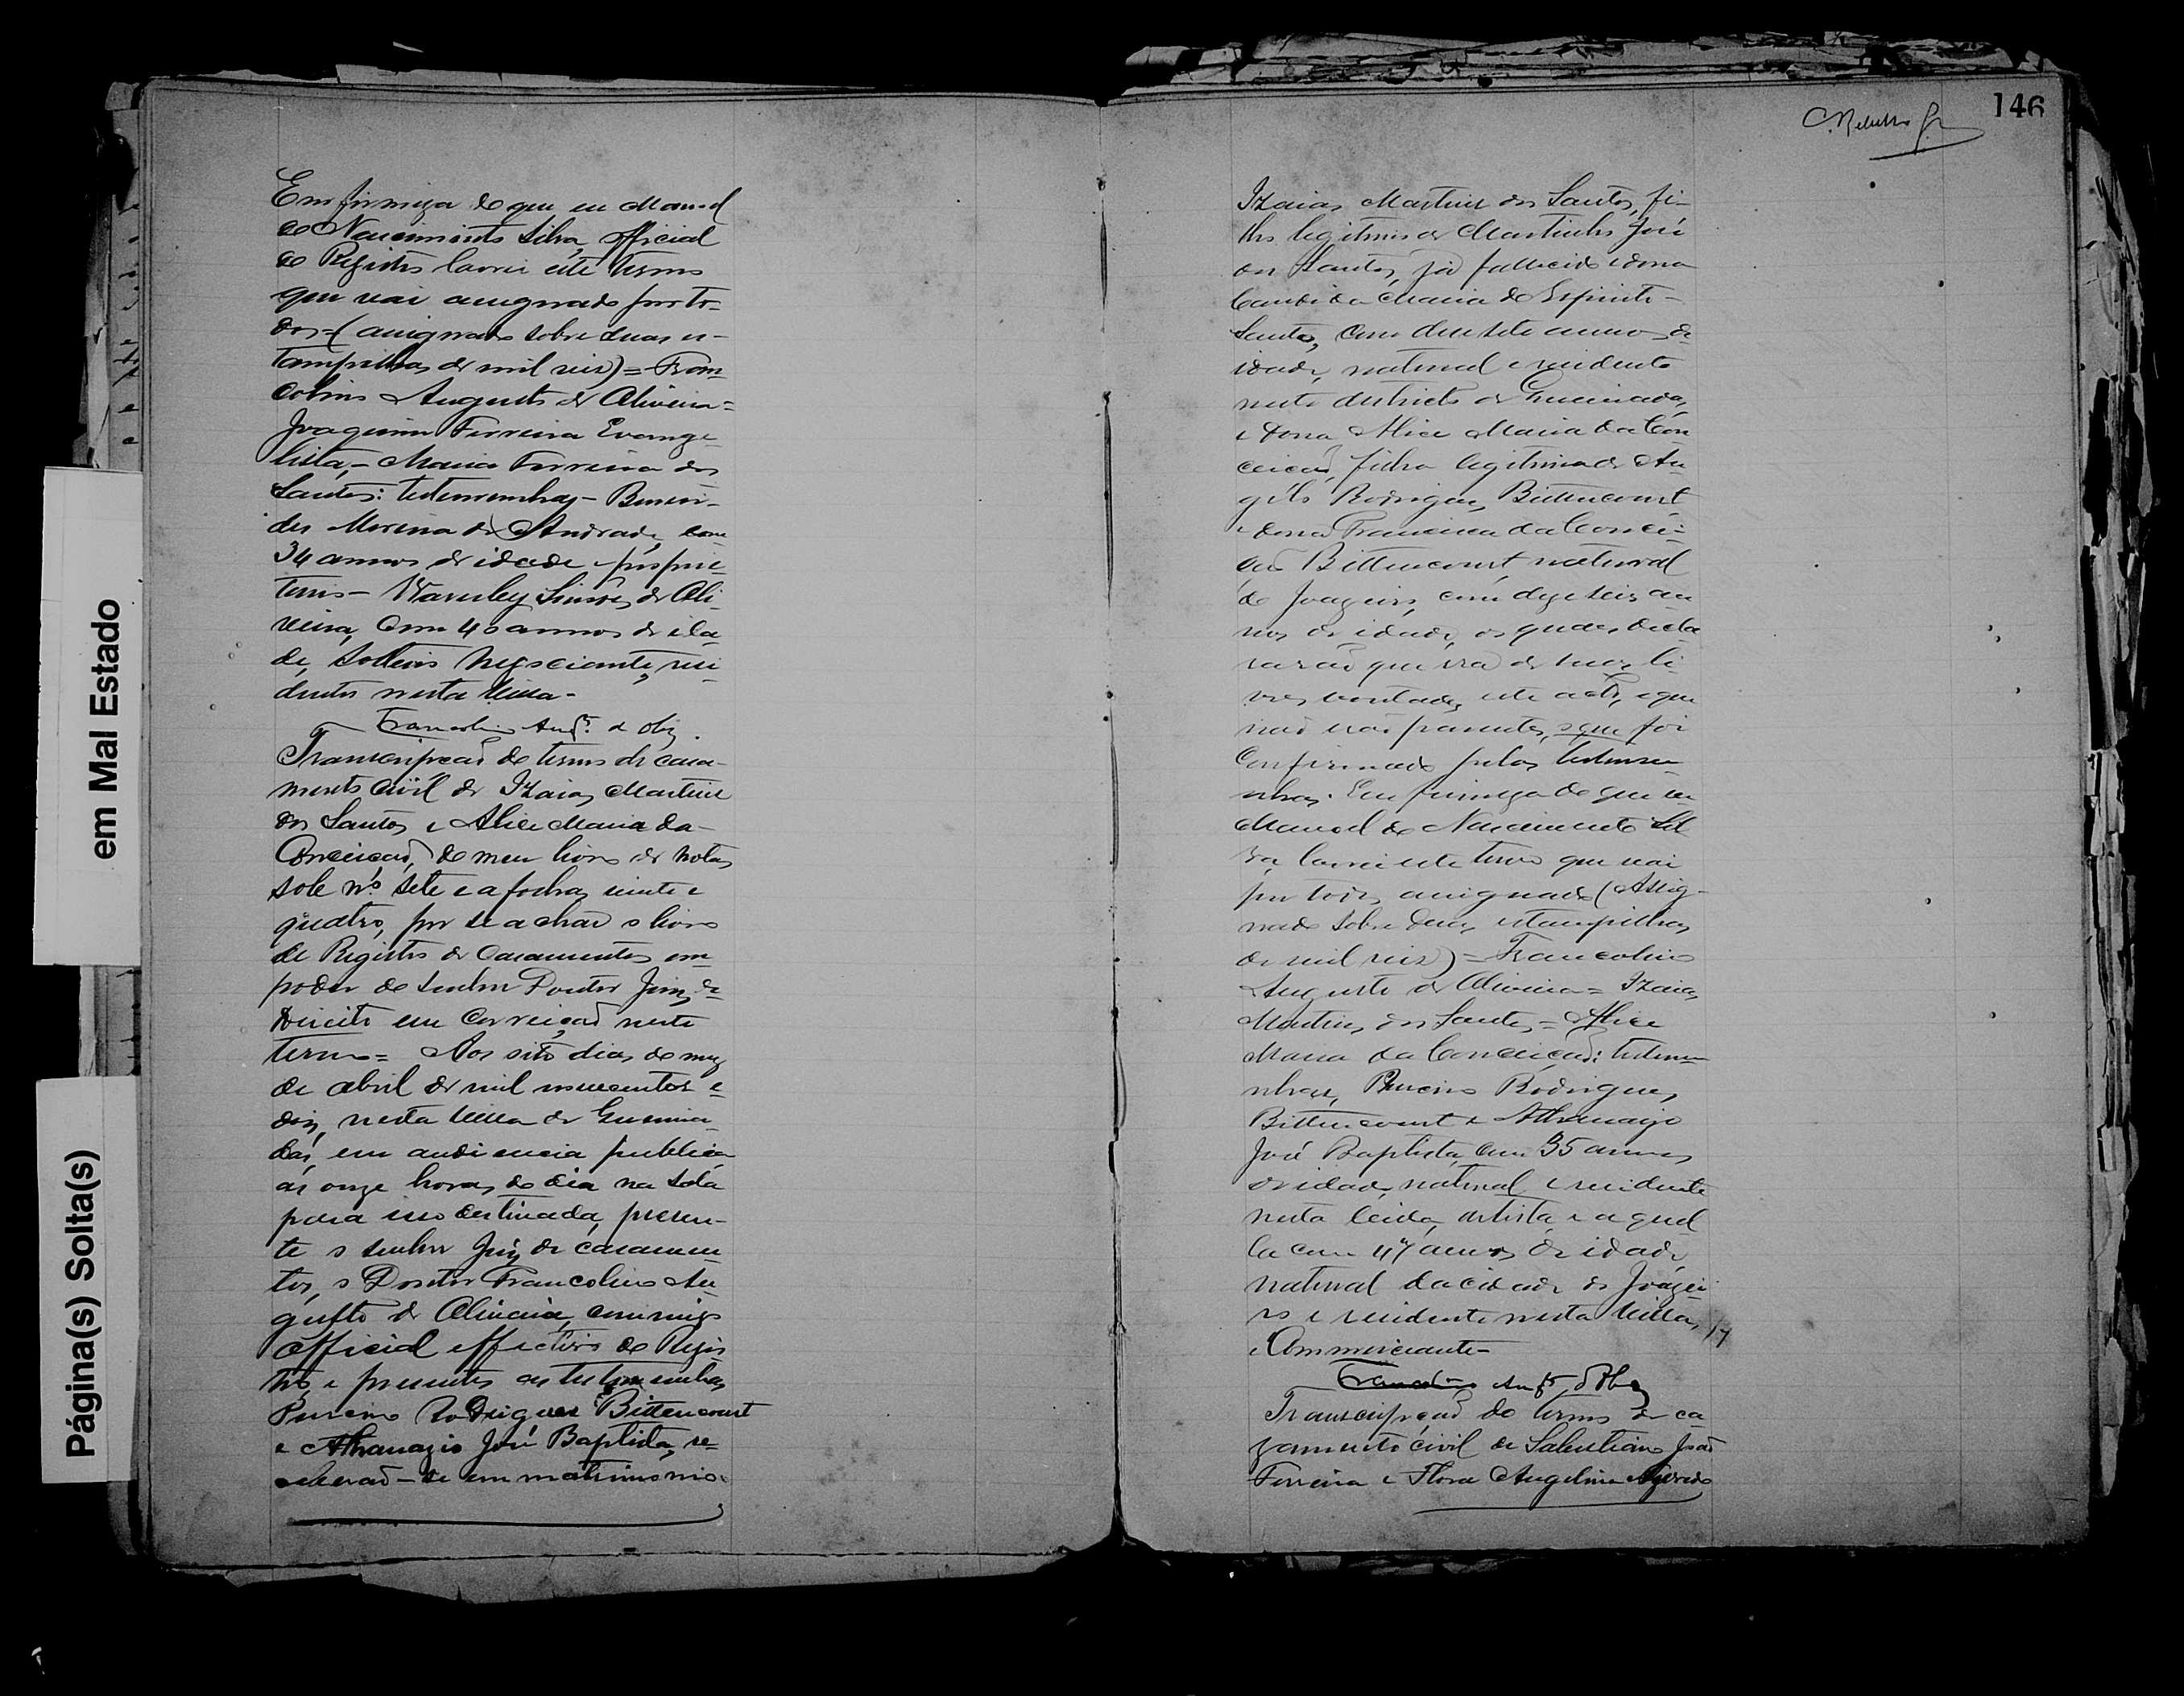 em Mal Estado
Página(s) Solta(s)
Em firmeza do que eu Manoel
do Nascimento Silva, official
do Registro lavrei este termo
que vai assignado por to-
dos=(assignado sobre duas es-
tampilhas de mil reis)=Fran-
colino Augusto de Oliveira=
Joaquim Ferreira Evange-
lista,- Maria Ferreira dos
Santos: testemunhas-
des Moreira de Andrade, com
34 annos de idade, proprie-
tario- Wanderley Simões de Oli-
veira, com 40 annos de ida-
de, solteiro negociante, resi-
dentes nesta villa-
Francolino Aug.to de Olivª.
Transcripção do termo de casa-
mento civil de Izaias Martins
dos Santos e Alice Maria da-
Conceição, do meu livro de notas
sob nº sete e a folhas vinte e
quatro, por se achar o livro
de Registro de Casamentos em
poder do senhor Doutor Juiz de
Direito em Correição neste
termo= Aos oito dias do mez
de abril de mil novecentos e
dez, nesta villa de Queima-
das, em audiencia publica
ás onze horas do dia na sala
para isso destinada, presen-
te o senhor Juiz de casamen-
tos, o Doutor Francolino Au-
gusto de Oliveira, commigo
official effectivo do Regis-
tro, e presentes as testemunhas
Rodrigues Bittencourt
e Athanazio José Baptista, re-
ceberão-se em matrimonio
146
Izaias Martins dos Santos, fi-
lho legitimo de Martinho José
dos Santos, já fallecido e dona
Candida Maria do Espirito-
Santo, com desesete annos de
idade, natural e residente
neste districto de Queimadas,
e Dona Alice Maria da Con
ceição, filha legitima de An
gelo Rodrigues Bittencourt
e dona Francisca da Concei-
ção Bittencourt natural
de Joazeiro, com dezeseis an
nos de idade, os quaes decla
rarão que era de suas li
vres vontades este acto, e que
não erão parentes, o que foi
Confirmado pelas testemu
nhas. Em firmeza do que eu
Manoel do Nascimento Sil
va, lavrei este termo que vai
por todos assignado (Assig-
nado sobre duas estampilhas
de mil reis)=Francolino
Augusto de Oliveira= Izaias
Martins dos Santos,= Alice
Maria da Conceição: testemu
nhas, Rodrigues
Bittencourt e Athanazio
José Baptista, com 35 annos
de idade, natural e residente
nesta artista e aquel
le com 47 annos de idade
natural da cidade de Joazei
ro e residente nesta villa,
Commerciante-
Francolino Aug.to d'Olivª
Transcripção do termo de ca
zamento civil de Salustiano João
Ferreira e Flora Angelina Azevedo